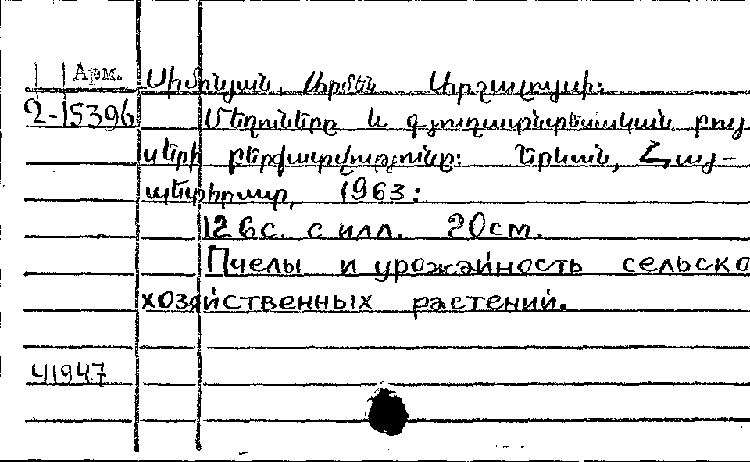 Арм. Սիմոնյան, Արմեն Արշալույսի:
2-15396 Մեղուները և գյուղատնտեսական բույ
սերի բերքատվությունը: Երևան, Հայ-
պետհրատ, 1963:
126с. с илл. 20см.
Пчелы и урожайность сельско
хозяйственных растений.
41947